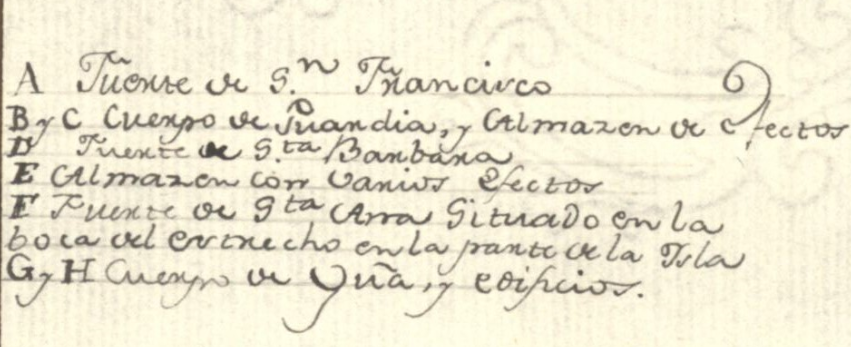 A Fuerte de S.n Francisco
B y C Cuerpo de Guardia, y Almazen de efectos
D Fuerte de S.ta Barbara
E Almazen con varios efectos
F Fuerte de Sta Ana Situado en la
boca del estrecho en la parte de la Isla
G y H Cuerpo de Gũa, y edificios.